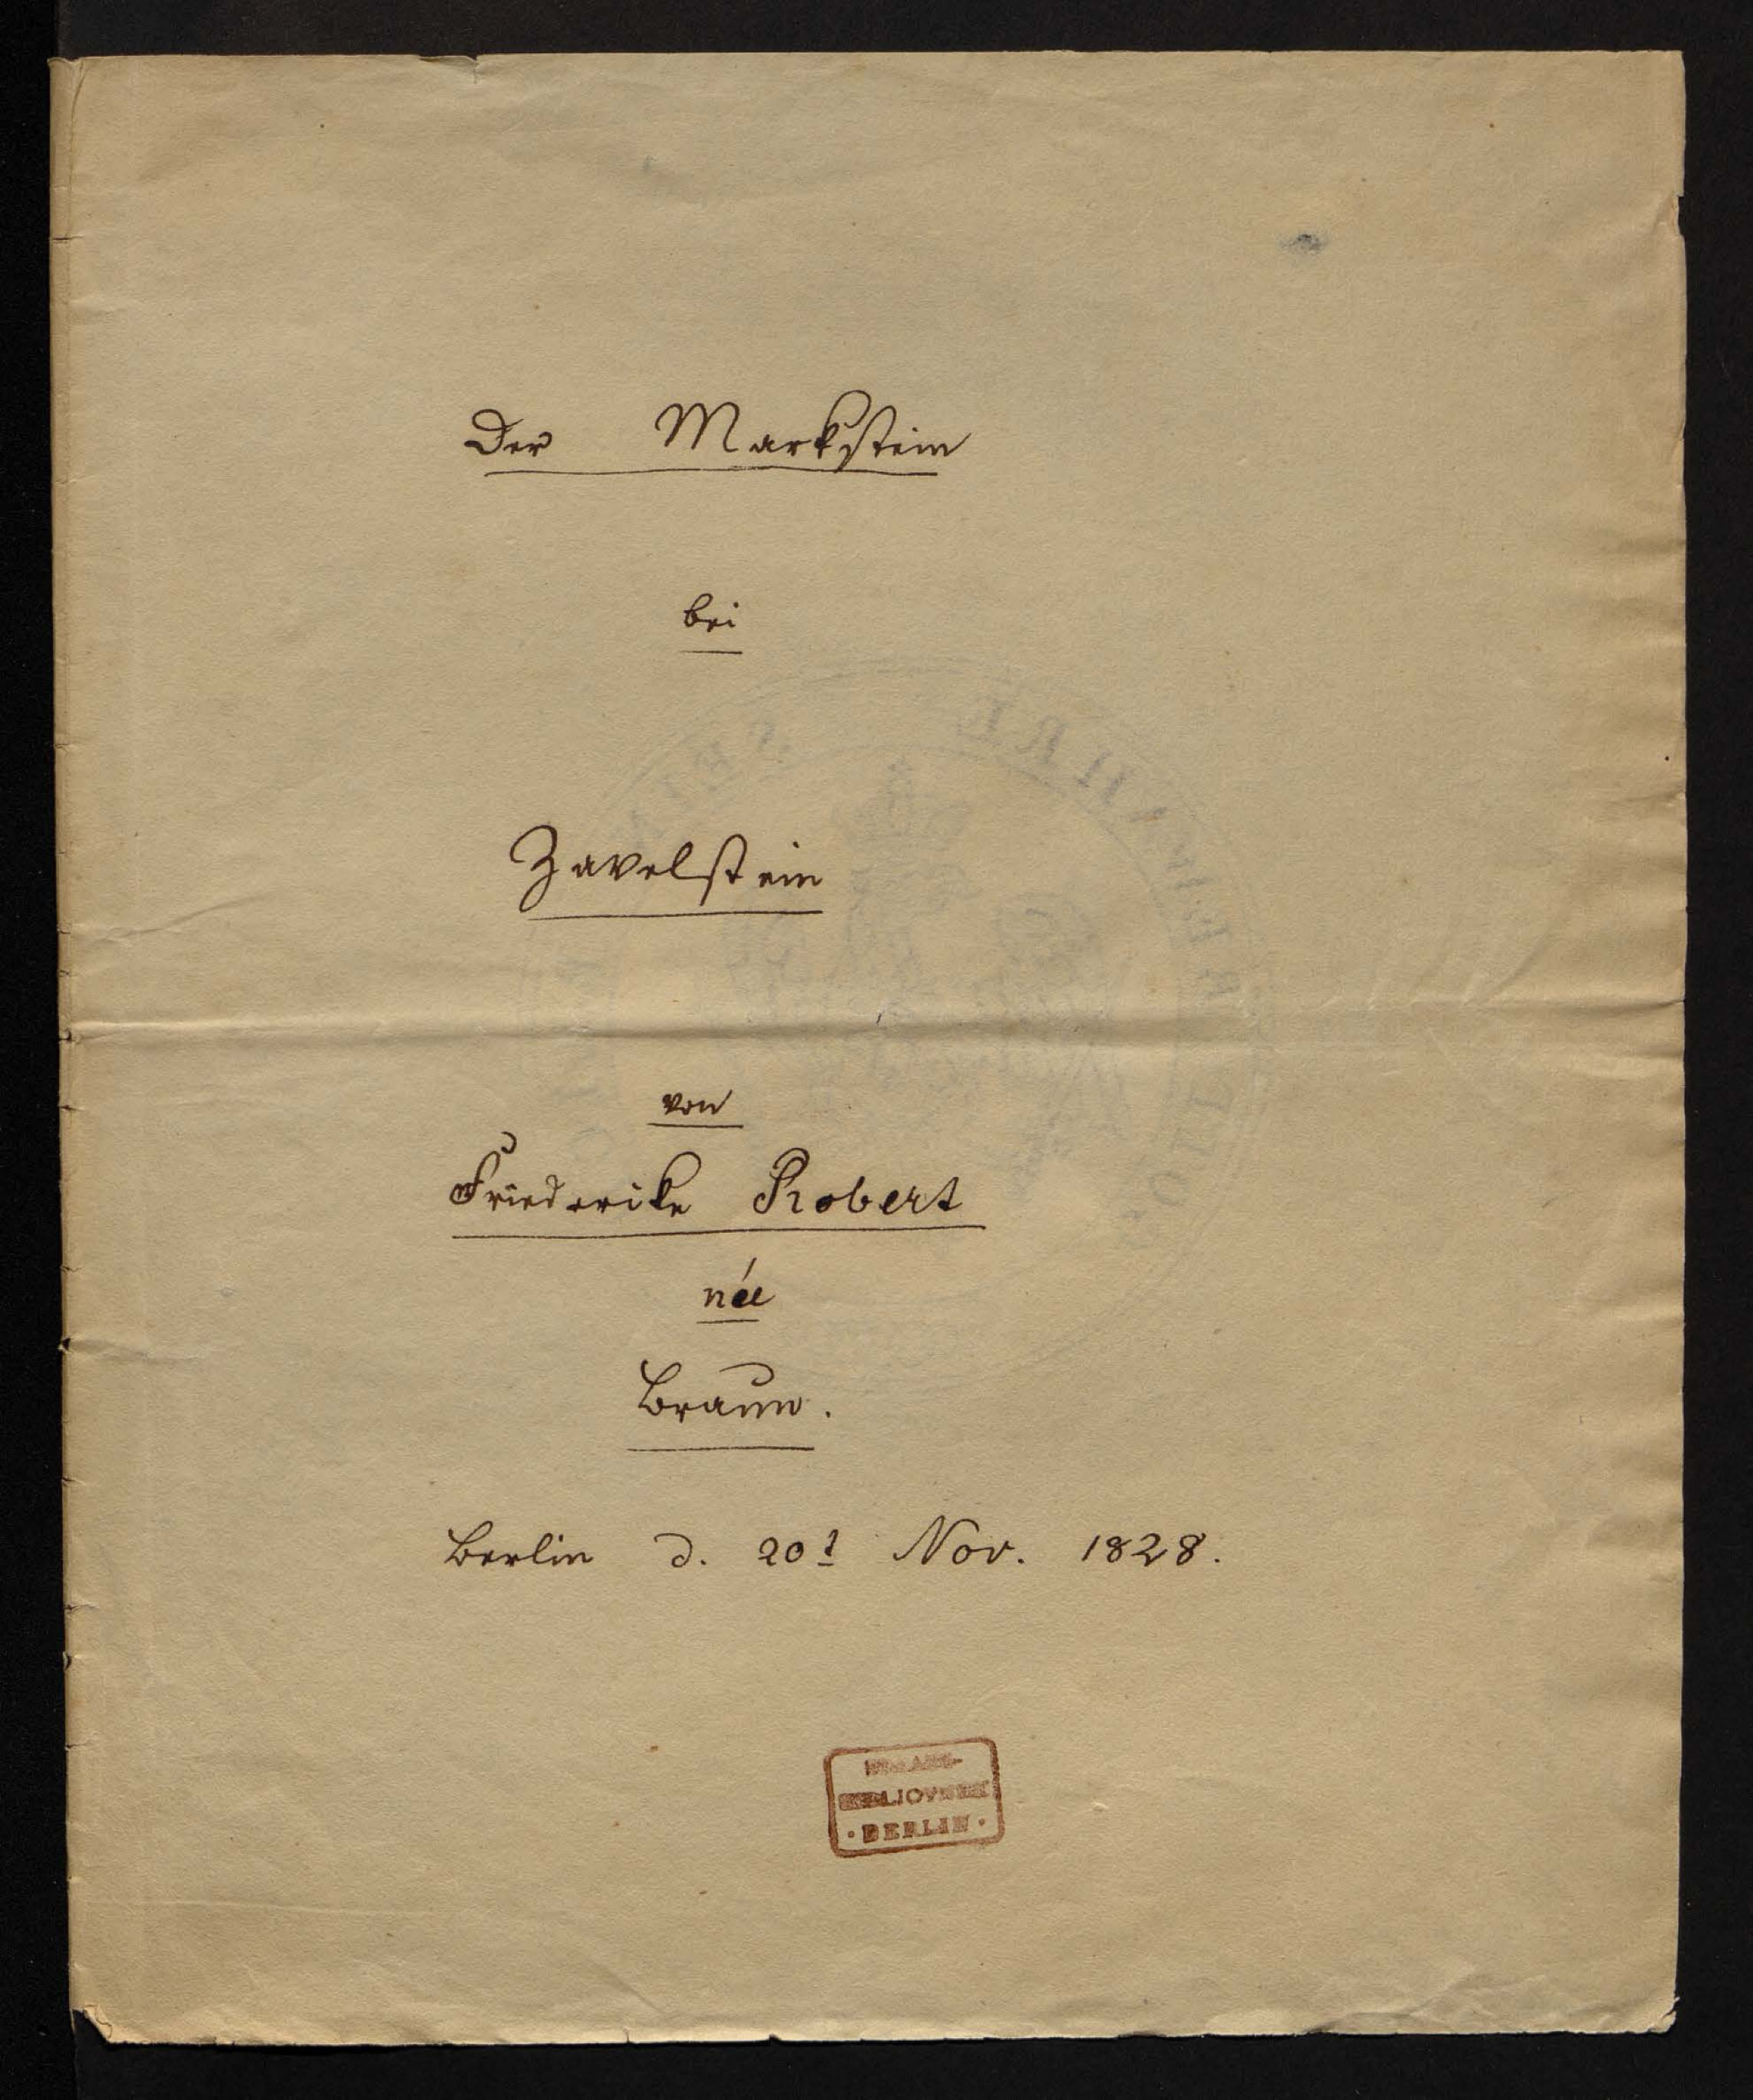 Der Markstein
bei
Zavelstein
von
Friederike Robert
née
Braun.
Berlin d. 20t Nov. 1828.
BIBLIOTHEK
· BERLIN ·